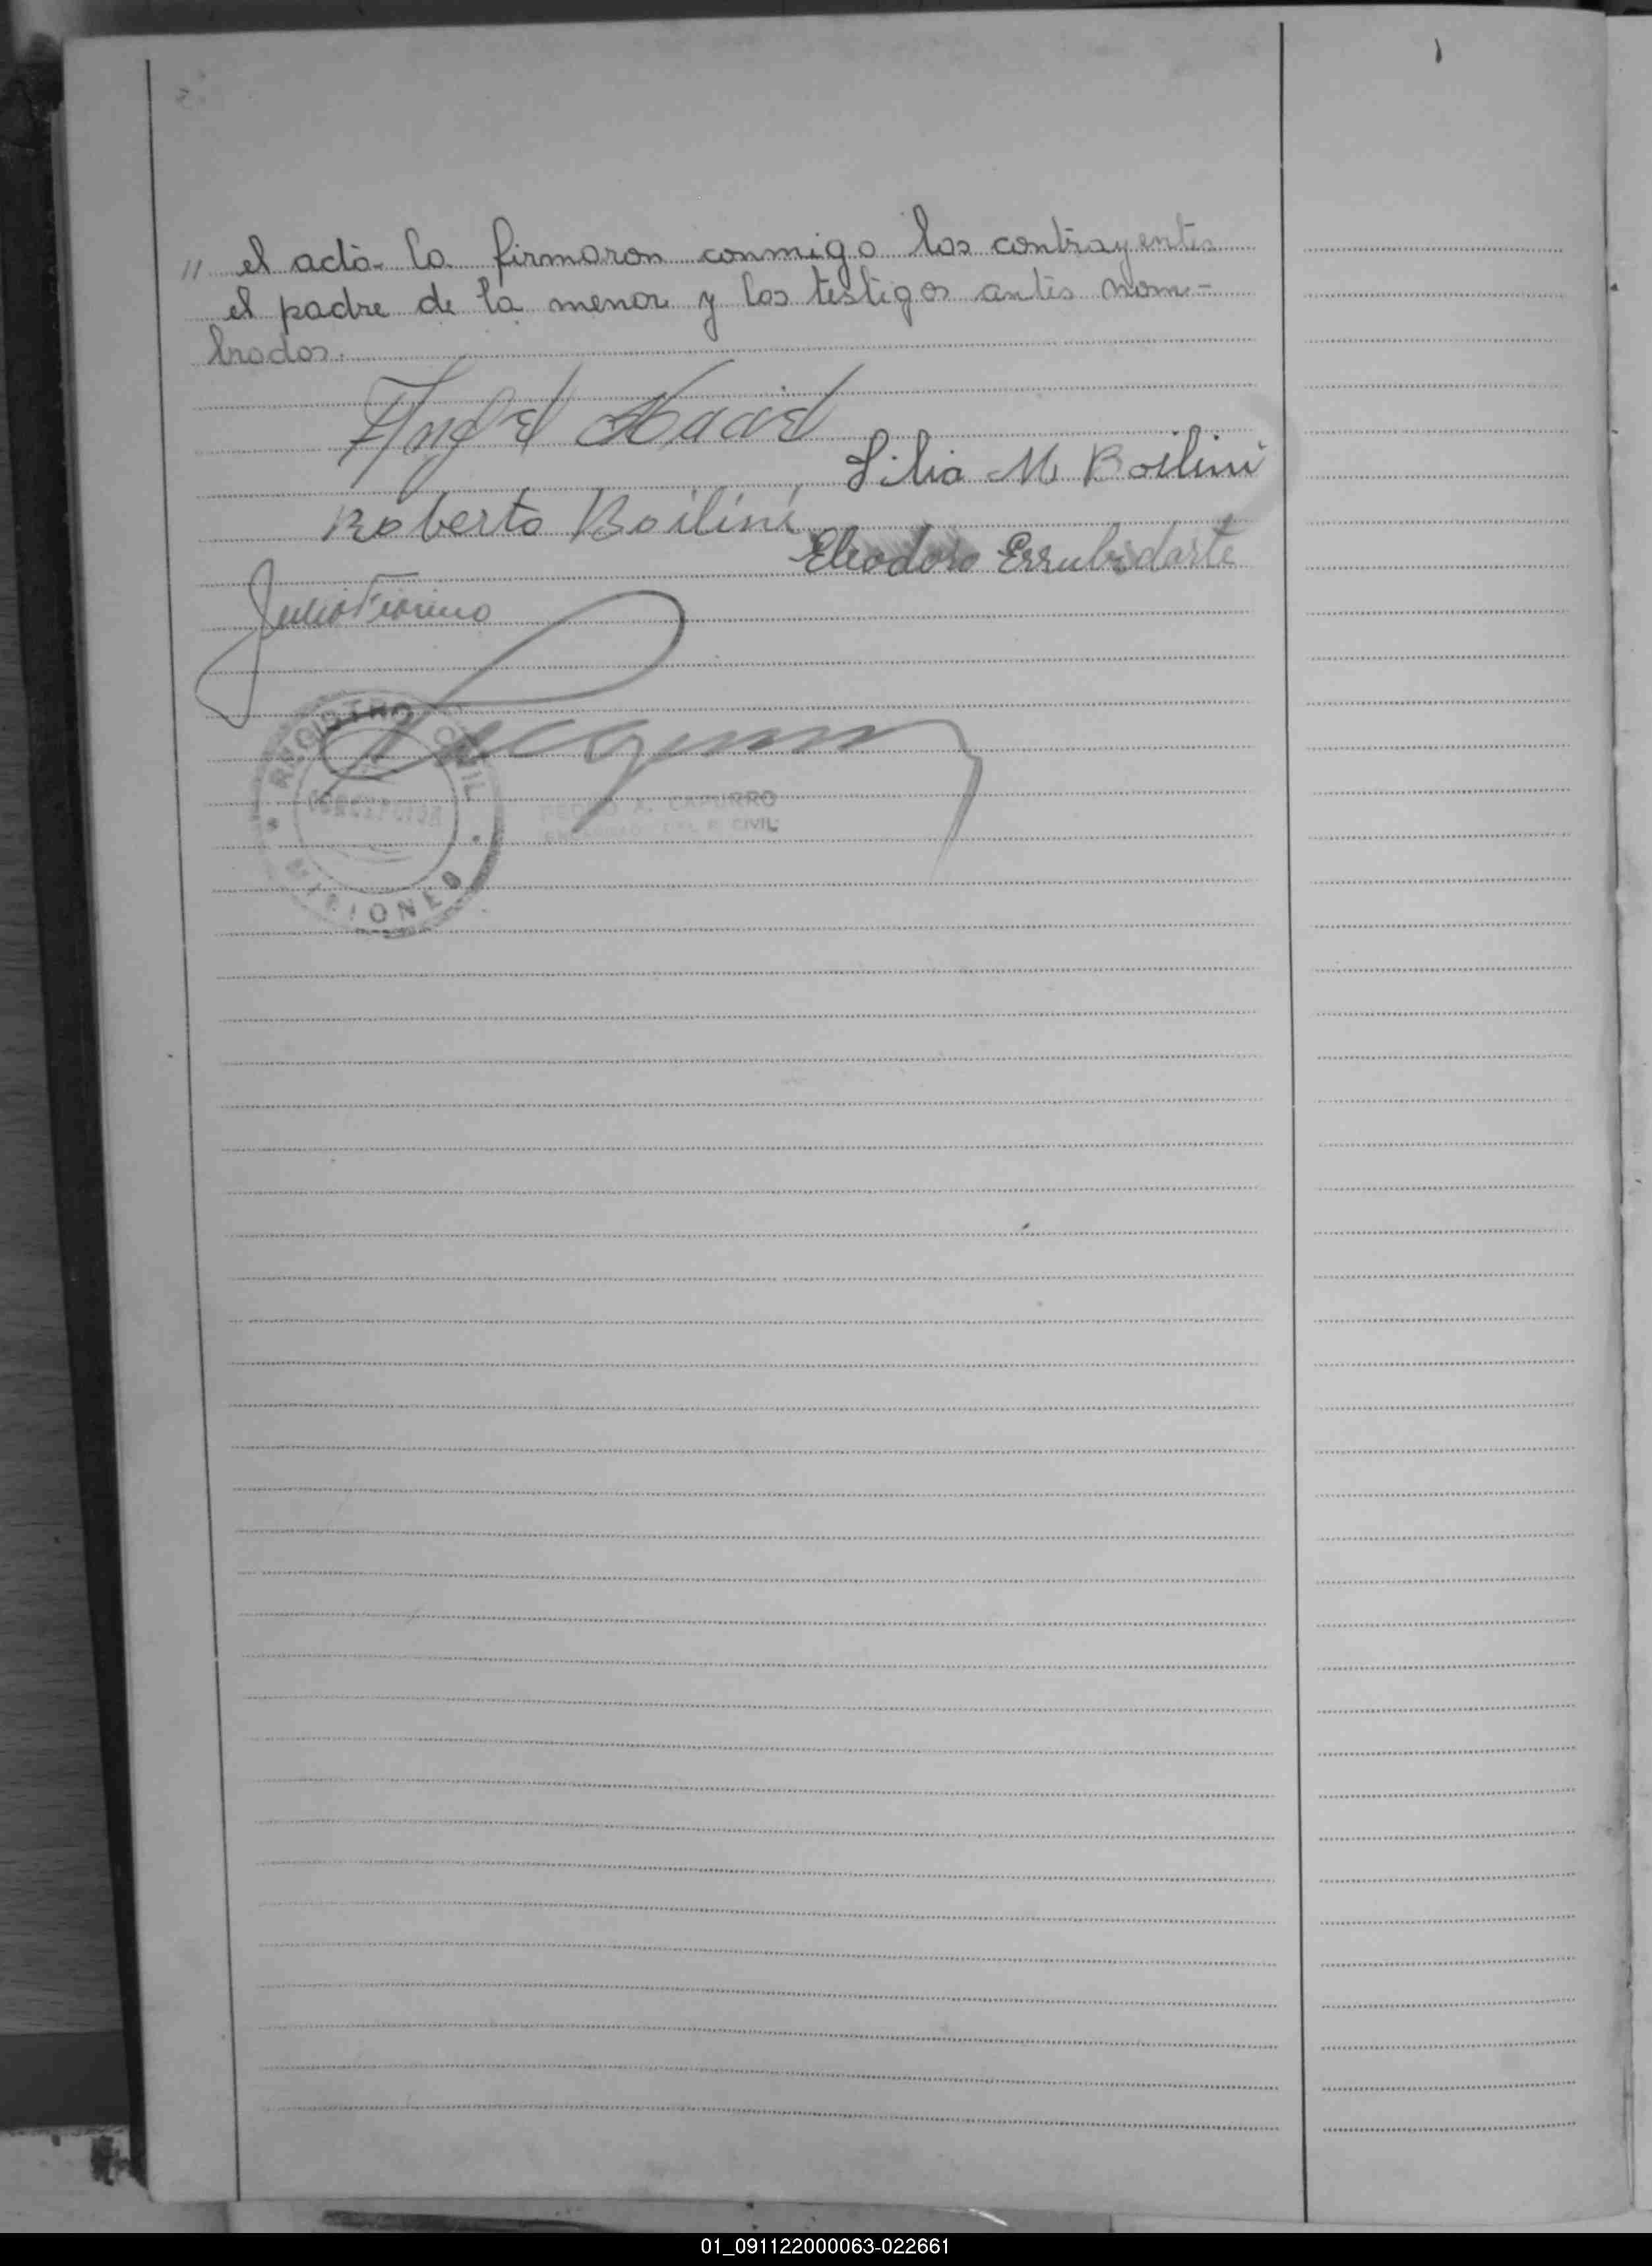 " el acta la firmaron conmigo los contrayentes
el padre de la menor y los testigos antes nom-
brados.
Angel
Lilia M Boilini
Roberto Boilini
Eleodoro Errubidarte
Julio Fiorino
REGISTRO CIVIL
CONCEPCION
MISIONES
PEDRO A. CAPURRO
CIVIL
01_091122000063-022661